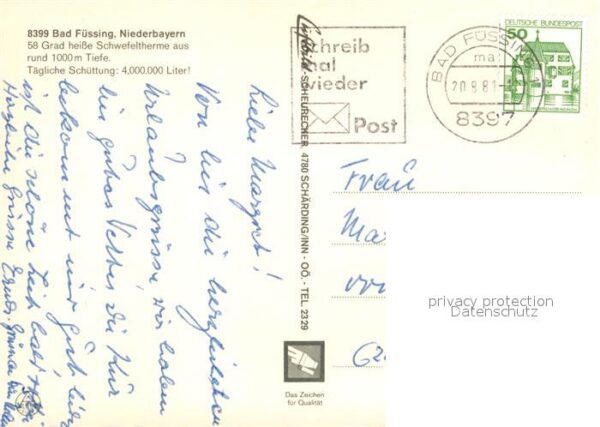 8399 Bad Füssing, Niederbayern
58 Grad heiße Schwefeltherme aus
rund 1000 m Tiefe.
Tägliche Schüttung: 4,000.000 Liter!
Liebe Margret!
Von hier die herzlichsten
Urlaubsgrüsse, wir haben
ein gutes Wetter, die Kur
bekommt mir gut, leider
ist die schöne Zeit bald
Herzliche Grüsse
Luftbild SCHEURECKER, 4780 SCHÄRDING/INN - OÖ. - TEL. 23 29
Schreib
mal
wieder
Post
BAD FÜSSING
ma
20.8.81
8397
DEUTSCHE BUNDESPOST
50
Frau
Ma
privacy protection
Datenschutz
Das Zeichen
für Qualität